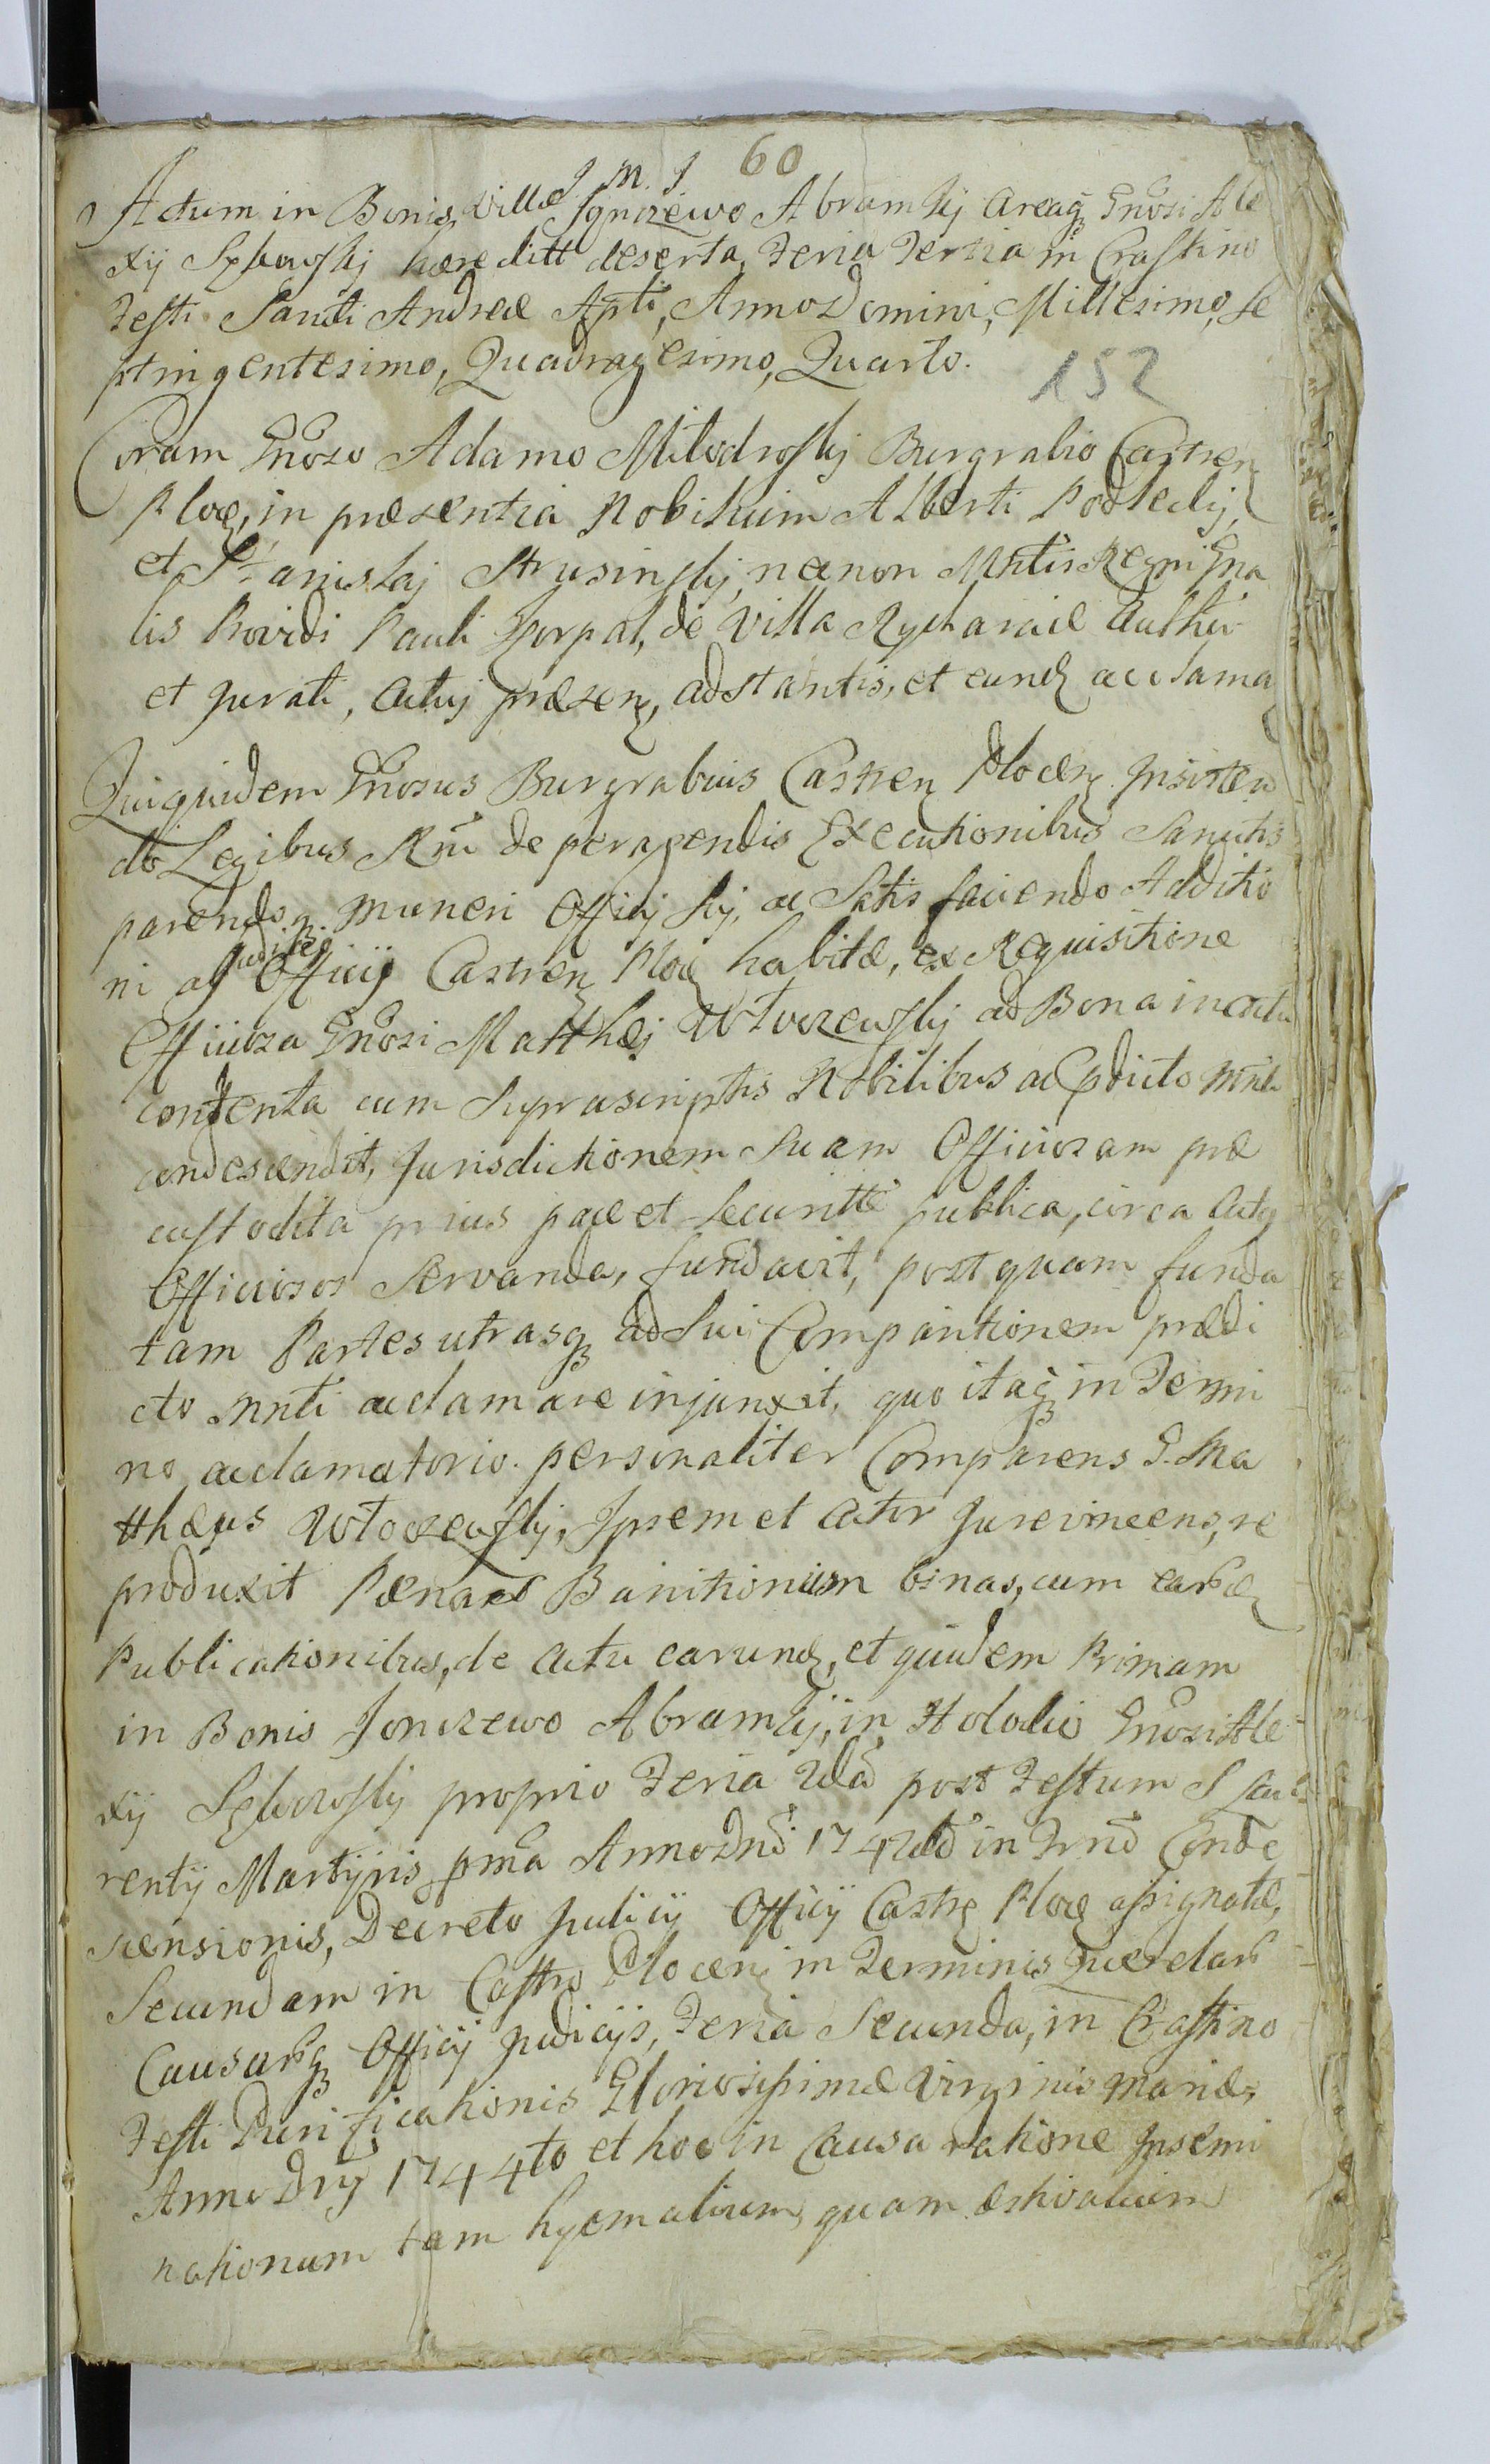 60
J. M. J.
Actum in Bonis, Villæ Jgnczewo Abramky Areaq Gnosi Ale
xij hæreditt deserta, Feria Tertia in Crastino
Festi Sancti Andreæ Apti, Anno Domini, Millesimo, Se
ptingentesimo, Quadragesimo, Quarto.
152
Coram Gnoso Adamo Miłodrosky Burgrabio Castren
Ploc, in præsentia Nobilium Alberti
et Stanislaj Strusinsky, necnon Mntis Regni Gna
lis Providi Pauli de Villa Authen
et Jurati, Actuj præsen, adstantis, et eund acclama
Quiquidem Gnosus Burgrabius Castren Plocen Insisten
do Legibus Rni de peragendis Executionibus Sancitis
parendoq muneri Officij Suj, ac Satis faciendo Additio
ni ab Judicij
Officij Castren Ploc habitæ, ex Requisitione
Officiosa Gnosi Matthæj ad Bona in actu
contenta cum Suprascriptis Nobilibus ac pdicto Mnti
condescendit, Jurisdictionem Suam Officiosam præ
custodita prius pace et Securitte publica, circa Actq
Officiosos Servanda, fundavit, post quam funda
tam Partes utrasq ad Sui Comparitionem prædi
cto Mnti acclamare injunxit, quo itaq in Termi
no acclamatorio personaliter Comparens G. Ma
tthæus Ipsemet Actor Jurevincens, re
produxit Pænas Banitionum binas, cum earud
Publicationibus, de Actu earund, et quidem Primam
in Bonis Jgnczewo Abramky, in Gnosi Ale
xij proprio Feria 2da post Festum S Lau
rentij Martyris pma Anno Dni 1742do in Trno Conde
scensionis, Decreto Judicij Officij Castre Ploc assignatæ,
Secundam in Castro Plocen in Terminis Querelar
Causarq Officij Judicijs, Feria Secunda, in Crastino
Festi Purificationis Gloriosissimæ Virginis Mariæ,
Anno Dnj 1744to et hoc in Causa ratione Insemi
nationum tam hyemalium, quam æstivalium